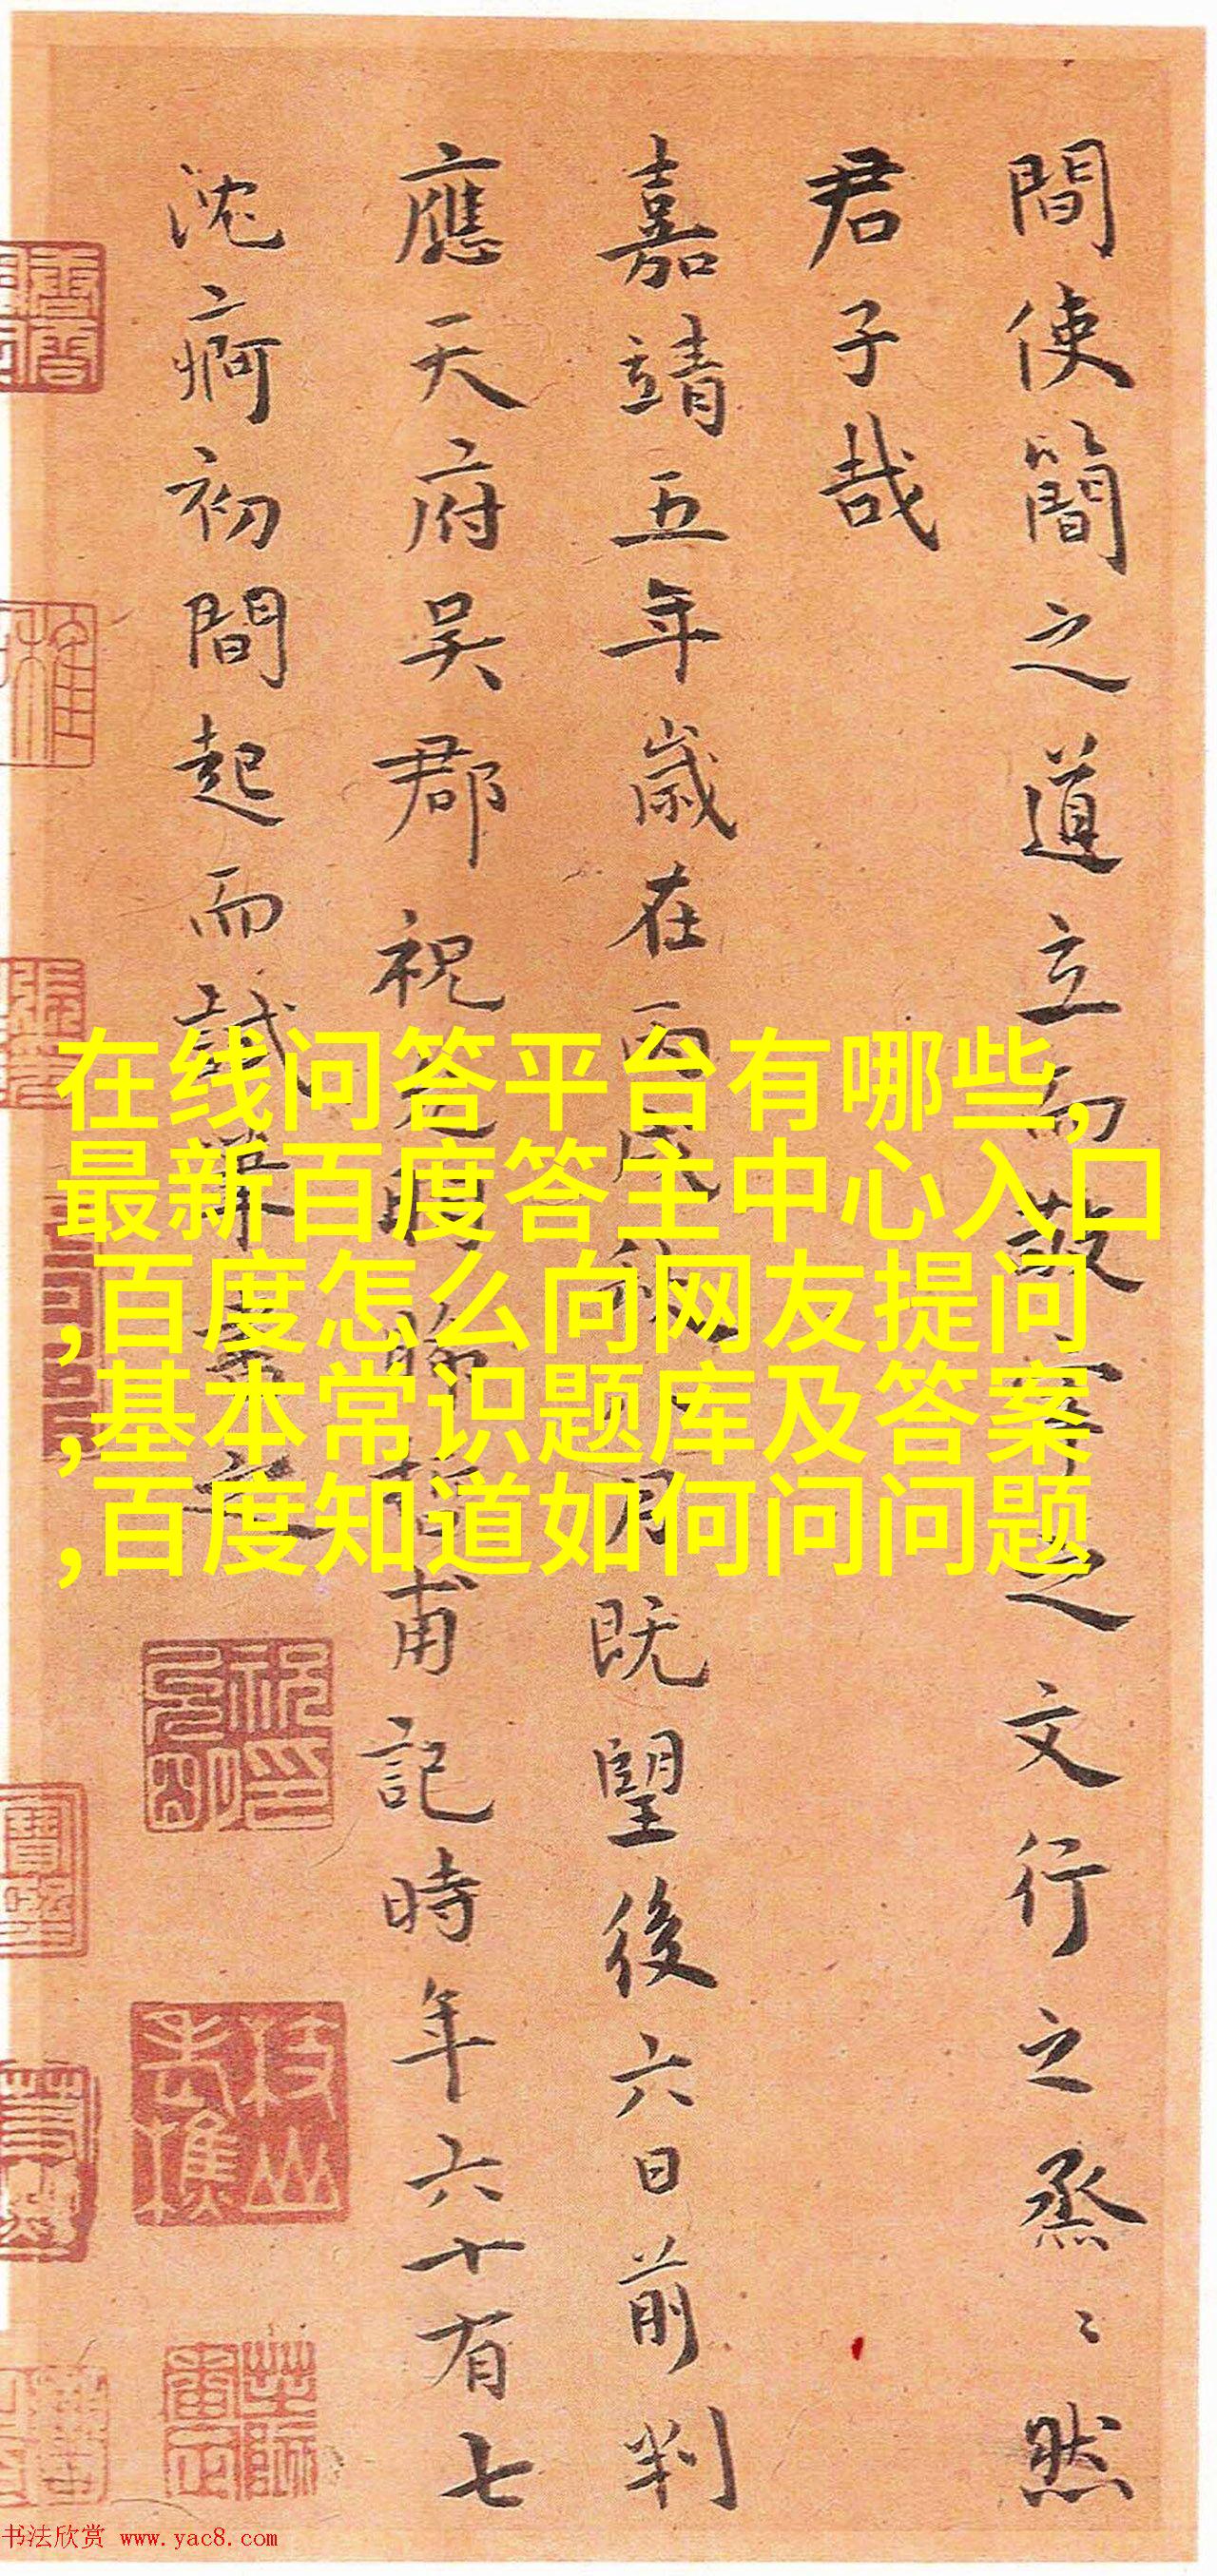 間使簡之道立而敬寧之文行之烝〻然
君子哉
嘉靖五年歲在丙戌秋七月既望後六日前判
應天府吴郡祝允明晞哲甫記時年六十有七
沈痾初間起而試筆書之
在线问答平台有哪些,
最新百度答主中心入口
,百度怎么向网友提问
,基本常识题库及答案
,百度知道如何问问题
书法欣赏 www.yac8.com